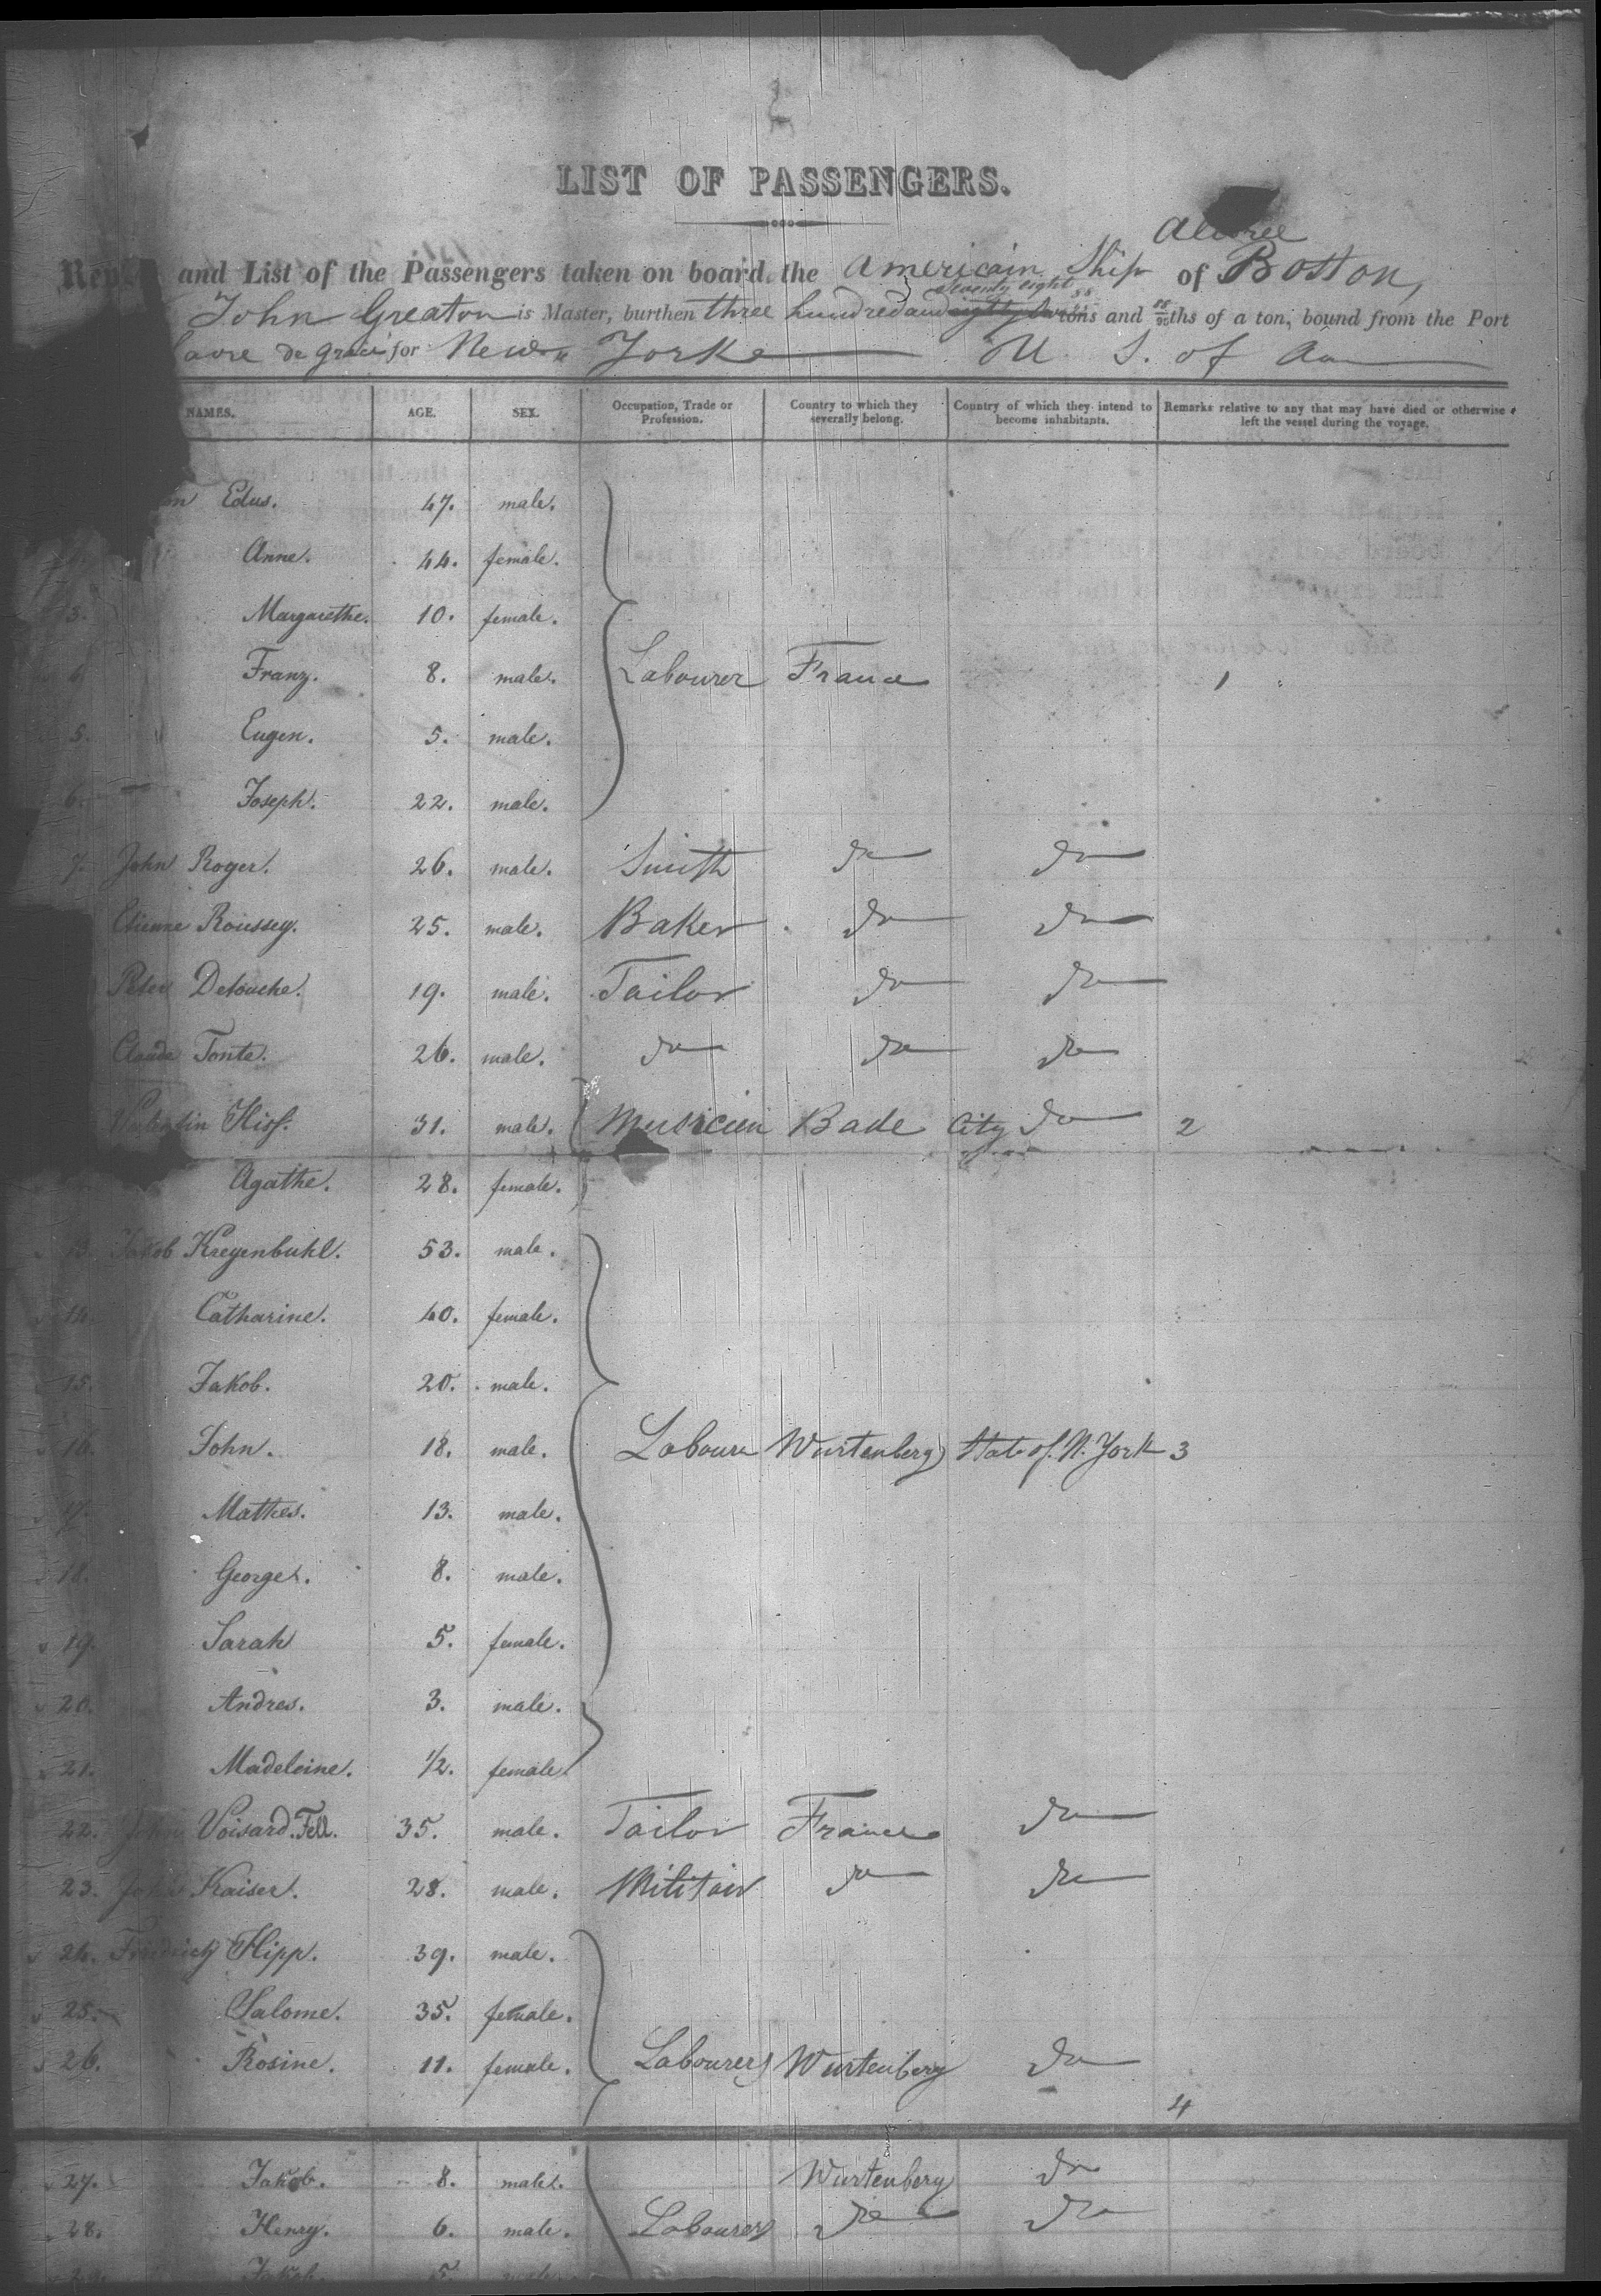 LIST OF PASSENGERS.
and List of the Passengers taken on board the Americain Ship of Boston,
John Greaton is Master, burthen three hundred and seventy eight tons and ths of a ton, bound from the Port
avre de Grace for New Yorke U. S. of Am
NAMES. AGE. SEX. Occupation, Trade or Profession. Country to which they severally belong. Country of which they intend to become inhabitants. Remarks relative to any that may have died or otherwise left the vessel during the voyage.
Edus. 47. male.
Anne. 44. female.
3. Margarethe. 10. female.
4 Franz. 8. male. Labourer France 1
5. Eugen. 5. male.
6. Joseph. 22. male.
7. John Roger. 26. male. Smith do do
Etienne Roussey. 25. male. Baker do do
Peter Detouche. 19. male. Tailor do do
Claude Tonte. 26. male. do do do
Valentin Hiss. 31. male. Musicien Bade City do 2
Agathe. 28. female.
13. Jakob Kreyenbuhl. 53. male.
14. Catharine. 40. female.
15. Jakob. 20. male.
16. John. 18. male. Laboure Wurtenberg State of N. York 3
17. Mathes. 13. male.
18. George. 8. male.
19. Sarah 5. female.
20. Andres. 3. male.
21. Madeleine. 1/2. female
22. John Voisard. Fell. 35. male. Tailor France do
23. John Kaiser. 28. male. Militair do do
24. Friedrich Hipp. 39. male.
25. Salome. 35. female.
26. Rosine. 11. female. Labourers Wurtenberg do
4
27. Jakob. 8. male. Wurtenberg do
28. Henry. 6. male. Labourers do do
29. Jakob. 5. male.